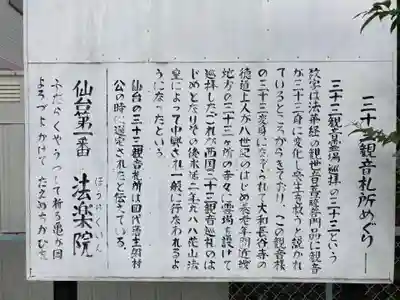 三十三観音札所めぐり
三十三観音霊場巡拝の三十三という
数字は法華経の観世音菩薩普門品に観音
が三十三身に変化し衆生を救うと説かれ
ているところからきており、この観音様
の三十三変身になぞられて大和長谷寺の
徳道上人が八世紀のはじめ養老年間近畿
地方の三十三ヶ所の寺々に霊場を設けて
巡拝したこれが西国三十三観音巡礼のは
じめとなりその後永延二年九八八花山法
皇によって中興され一般に行なわれるよ
うになったという
仙台の三十三観音札所は四代藩主綱村
公の時に選定されたと伝えている。
仙台第一番 法楽院
ほうらくいん
ふだらくやうつして祈る亀が岡
よろづよかけてたえぬちかひを